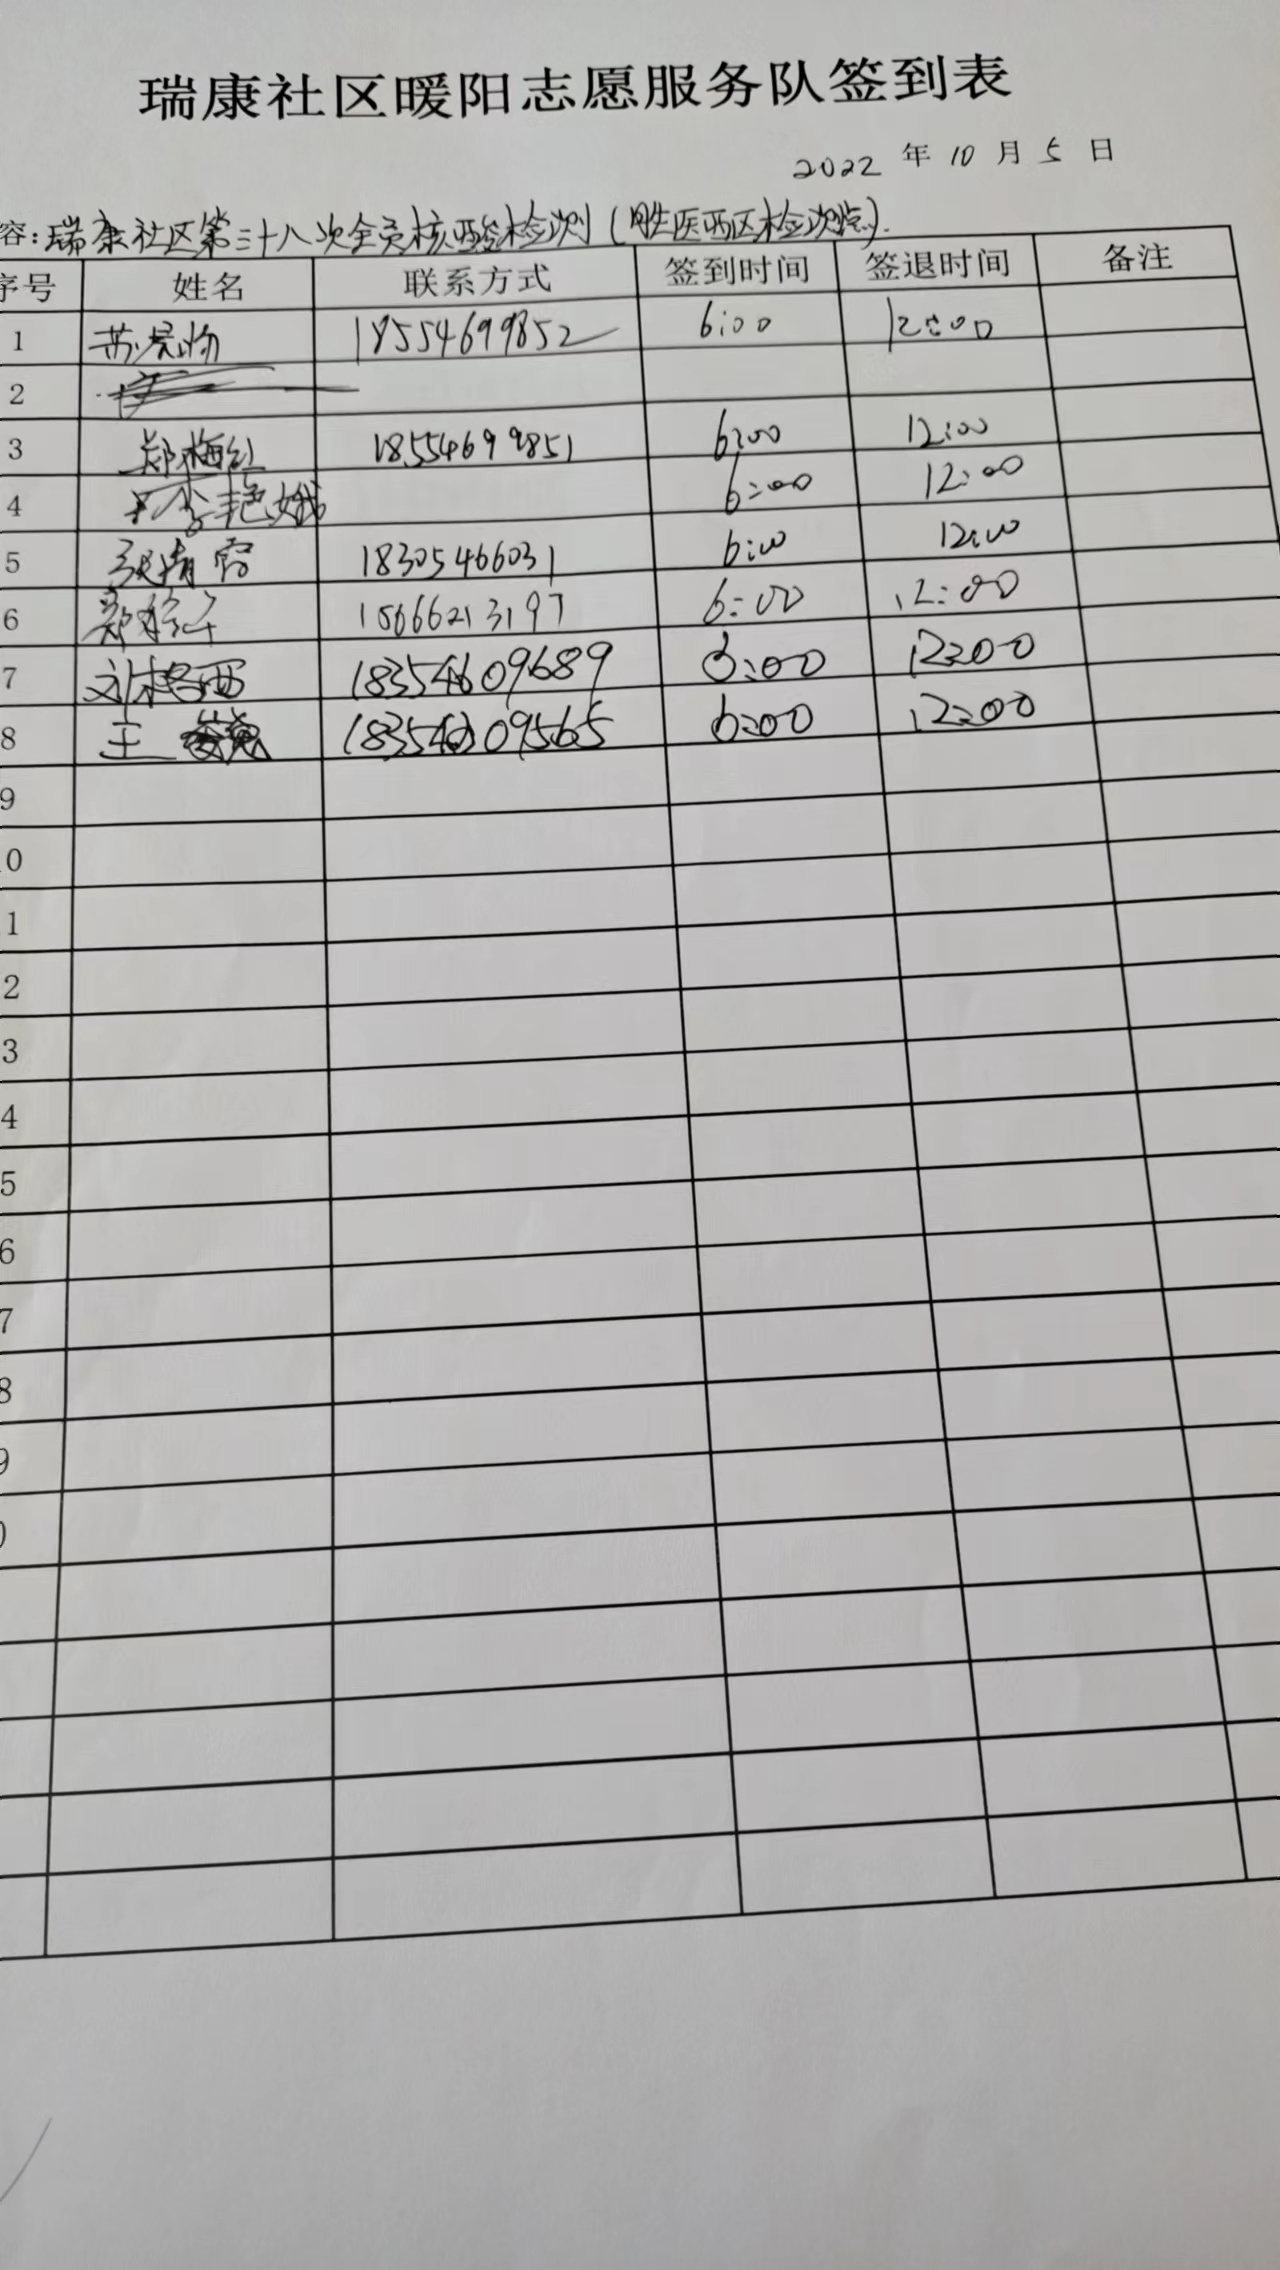 瑞康社区暖阳志愿服务队签到表
2022 年 10 月 5 日
容:瑞康社区第三十八次全员核酸检测(胜医西区检测点).
序号 姓名 联系方式 签到时间 签退时间 备注
1 18554699852 6:00 12:00
2
3 郑梅红 18554699851 6:00 12:00
4 李艳娥 6:00 12:00
5 张清容 18305466031 6:00 12:00
6 郑 15666213197 6:00 12:00
7 刘格西 18354609689 6:00 12:00
8 王 18354609565 6:00 12:00
9
0
1
2
3
4
5
6
7
8
9
0